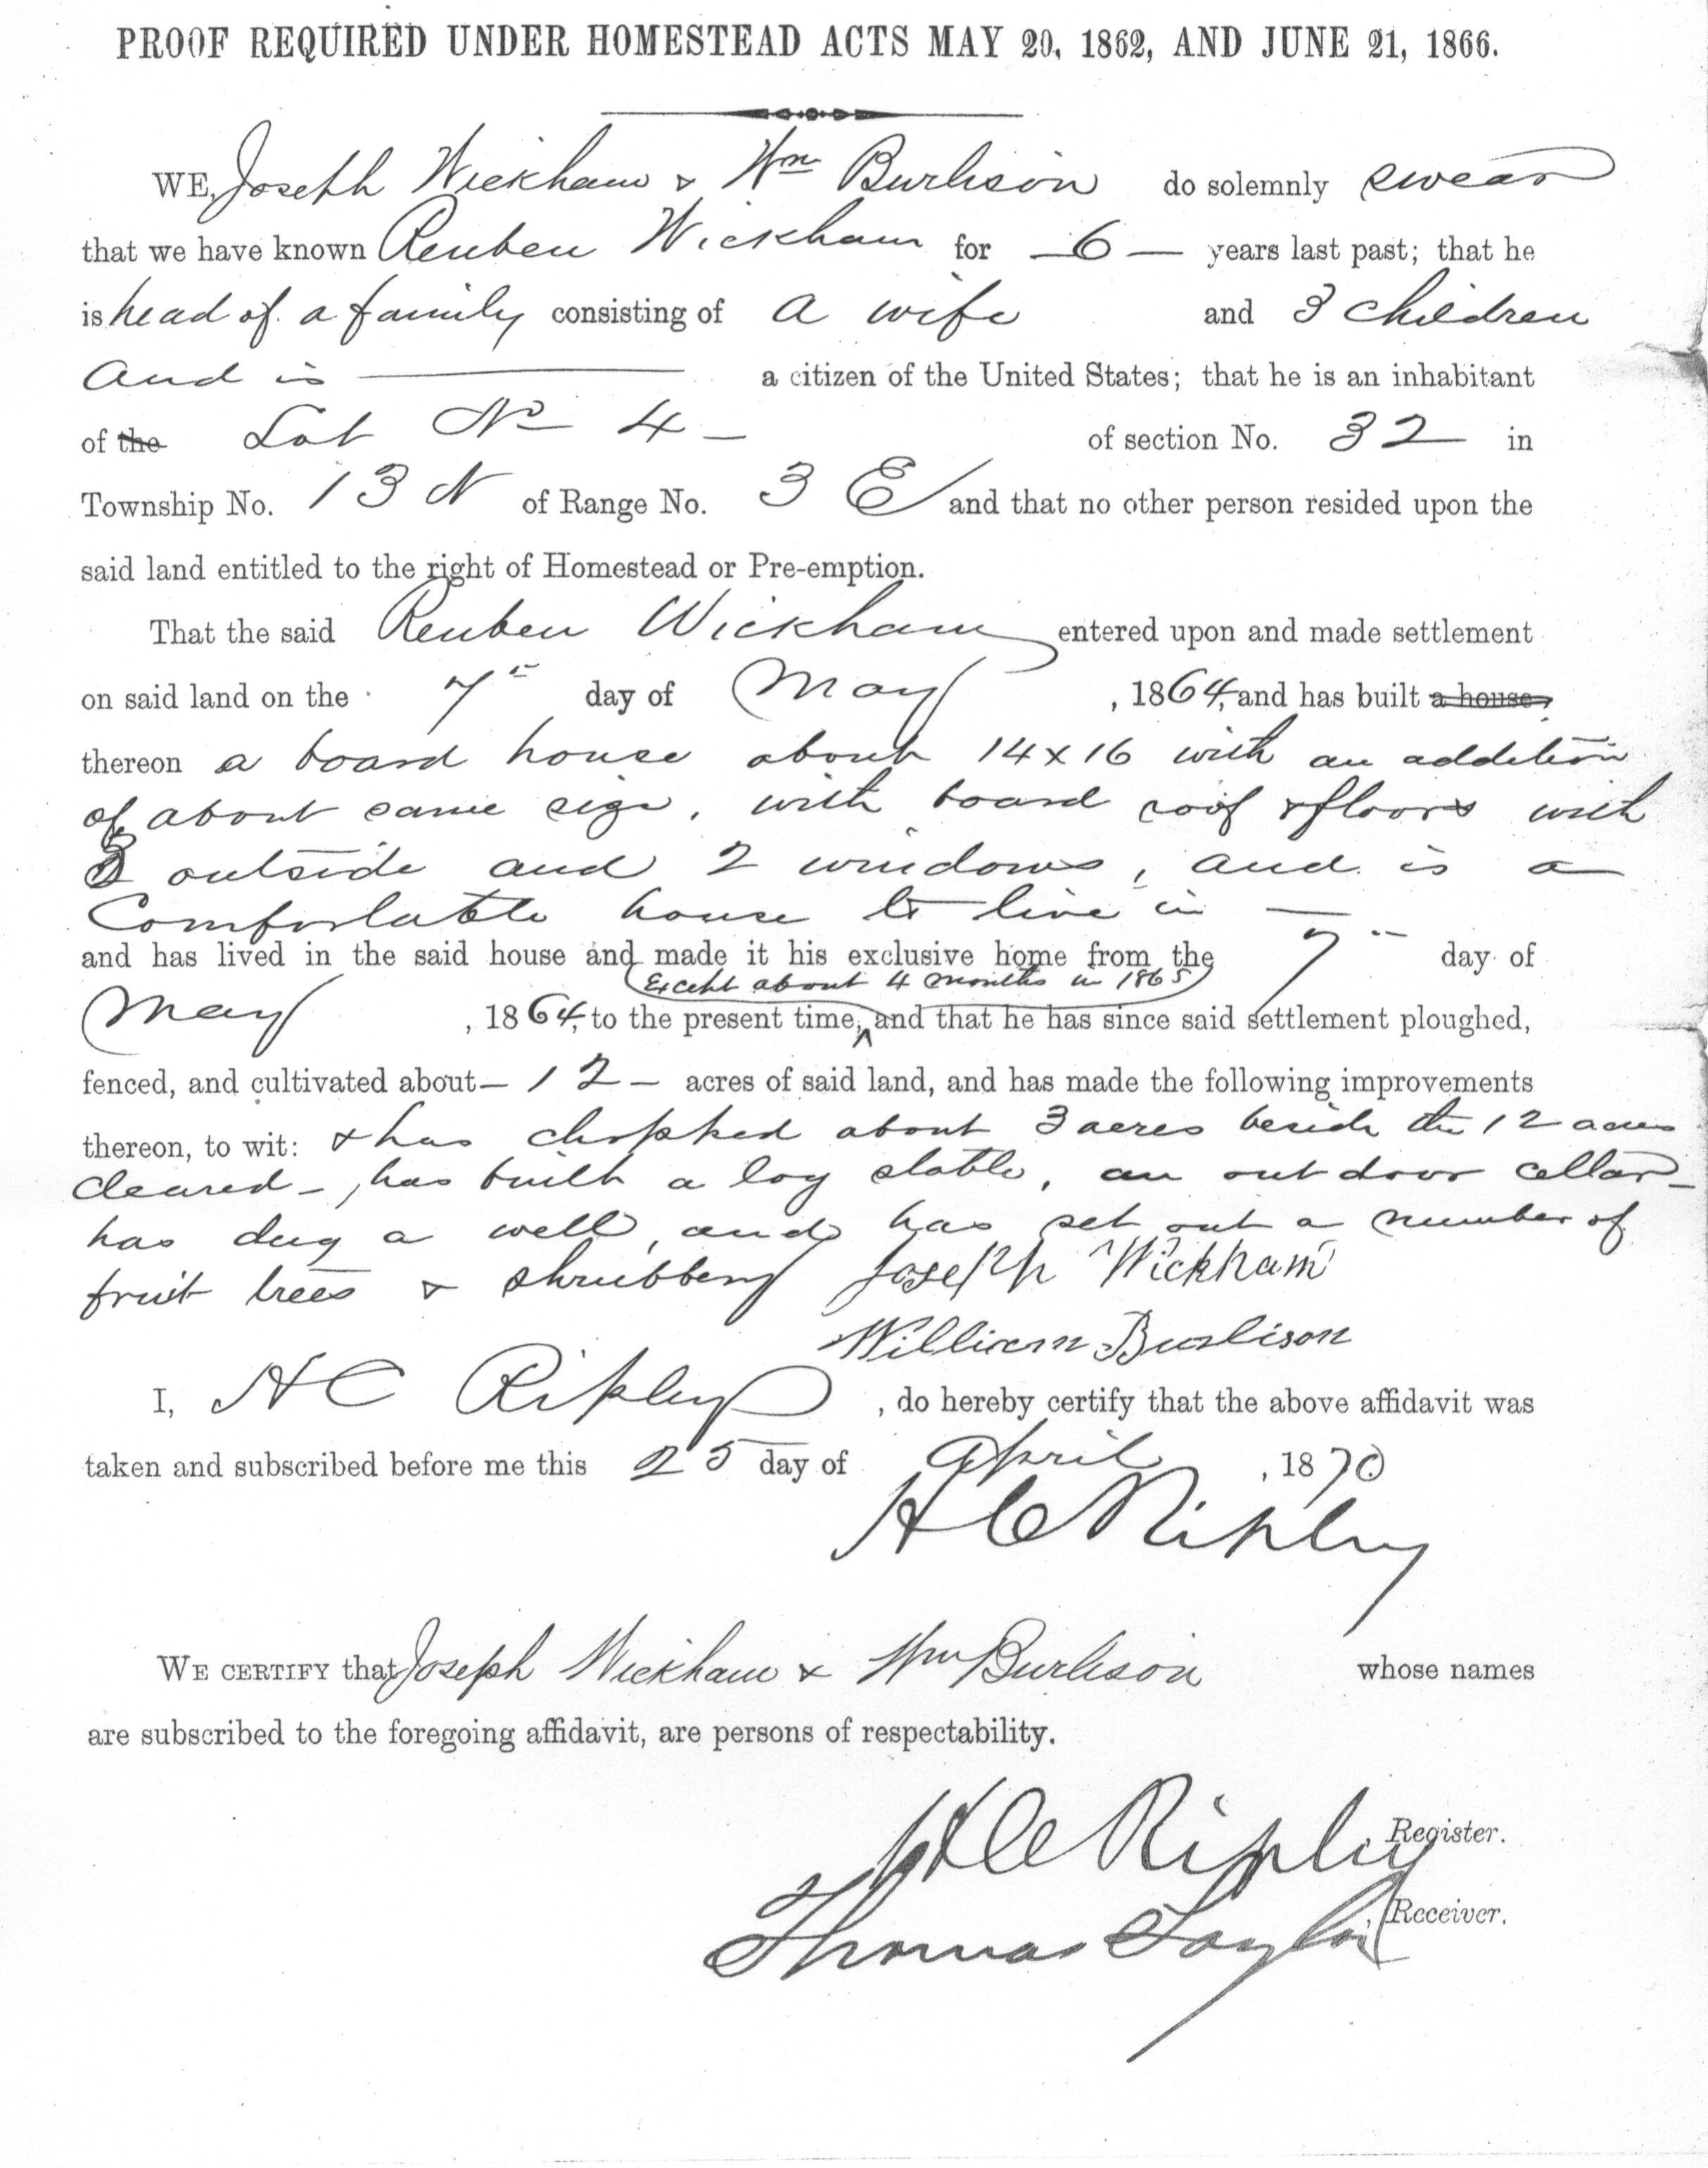 PROOF REQUIRED UNDER HOMESTEAD ACTS MAY 20, 1862, AND JUNE 21, 1866.
WE, Joseph Wickham & Wm Burlison do solemnly swear
that we have known Reuben Wickham for – 6 – years last past; that he
is head of a family consisting of a wife and 3 children
and is a citizen of the United States; that he is an inhabitant
of the Lot No 4 – of section No. 32 in
Township No. 13 N of Range No. 3 E and that no other person resided upon the
said land entitled to the right of Homestead or Pre-emption.
That the said Reuben Wickham entered upon and made settlement
on said land on the 7th day of May, 1864, and has built a house,
thereon a board house about 14 x 16 with an addition
of about same size, with board roof & floors with
outside and 2 windows, and is a
Comfortable house to live in —
and has lived in the said house and made it his exclusive home from the 7th day of
Except about 4 months in 1865
May, 1864, to the present time, and that he has since said settlement ploughed,
fenced, and cultivated about – 12 – acres of said land, and has made the following improvements
thereon, to wit: & has chopped about 3 acres beside the 12 acres
cleared –, has built a log stable, an out door cellar –
has dug a well, and has set out a number of
fruit trees & shrubbery Joseph Wickham
William Burlison
I, H C Ripley, do hereby certify that the above affidavit was
taken and subscribed before me this 25 day of April, 1870
H C Ripley
WE CERTIFY that Joseph Wickham & Wm Burlison whose names
are subscribed to the foregoing affidavit, are persons of respectability.
H C Ripley, Register.
Thomas Taylor, Receiver.